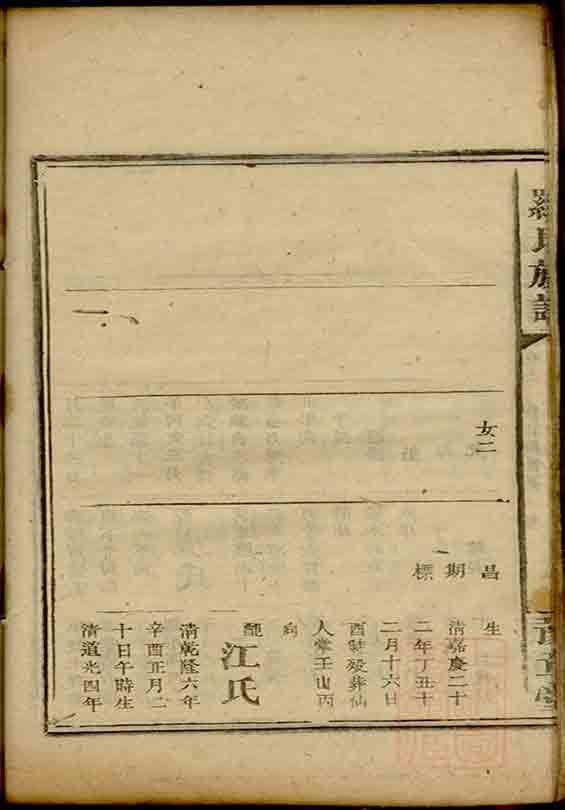 羅氏族譜
女二
昌期
標
生
清嘉慶二十
二年丁丑十
二月十六日
酉時歿葬仙
人掌壬山丙
向
配江氏
清乾隆六年
辛酉正月二
十日午時生
清道光四年